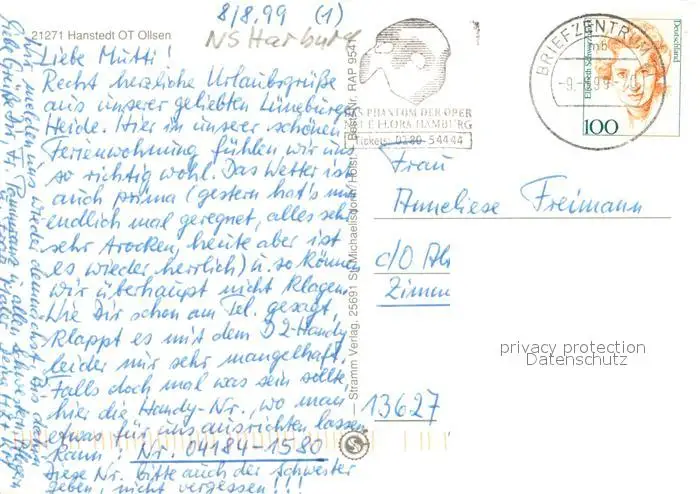 8/8.99 (1)
21271 Hanstedt OT Ollsen
NS Harburg
Liebe Mutti!
Recht herzliche Urlaubsgrüße
aus unserer geliebten Lüneburger
Heide. Hier in unserer schönen
Ferienwohnung fühlen wir uns
so richtig wohl. Das Wetter ist
auch prima (gestern hat's mal
endlich mal geregnet, alles sehr
sehr trocken, heute aber ist
es wieder herrlich) u. so können
wir überhaupt nicht klagen.
Wie Dir schon am Tel. gesagt,
klappt es mit dem D2-Handy
leider nur sehr mangelhaft.
Falls doch mal was sein sollte,
hier die Handy-Nr., wo man
etwas für uns ausrichten lassen
kann: Nr. 04184-1580
Diese Nr. bitte auch der Schwester
geben, nicht vergessen!!!
Wir melden uns wieder demnächst. Bis dahin
Liebe Grüße
Stramm Verlag, 25691 St. Michaelisdonn/Holst. Best.-Nr. RAP 954
PHANTOM DER OPER
FLORA HAMBURG
Tickets: 0180-54444
BRIEFZENTRUM
mb
Deutschland
100
Frau
Anneliese Freimann
c/o Ah
Zimm
13627
privacy protection
Datenschutz